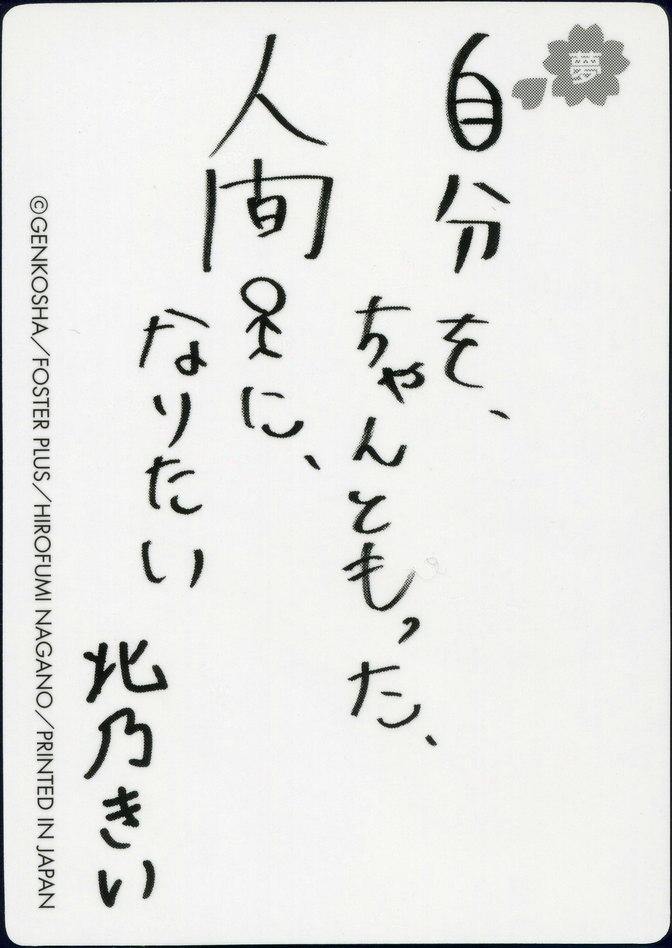 夢
自分を、
ちゃんともった、
人間に、
なりたい
北乃きい
©GENKOSHA/FOSTER PLUS/HIROFUMI NAGANO/PRINTED IN JAPAN